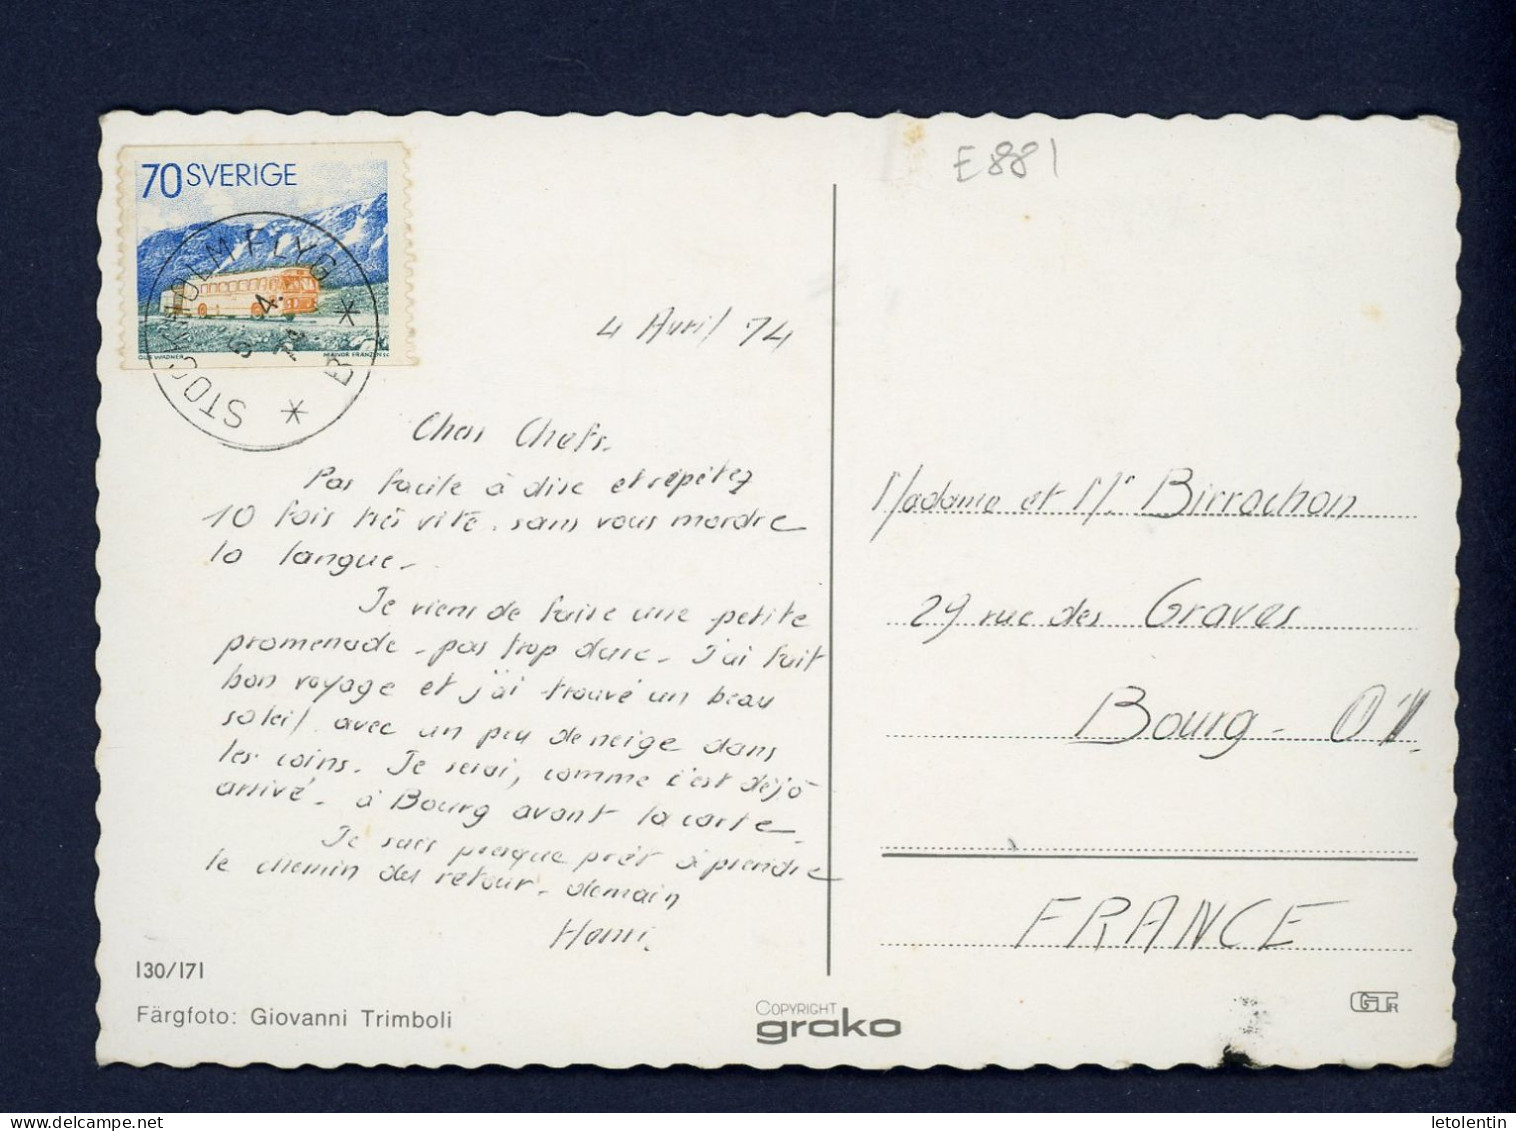 70 SVERIGE
OLLE WAGNER
MAJVOR FRANZÉN SC
STOCKHOLM FLYG
5. 4.
74
* B *
E 881
4 Avril 74
Chers Chefs.
Pas facile à dire et répétez
10 fois très vite. sans vous mordre
la langue.
Je viens de faire une petite
promenade - pas trop dure - J'ai fait
bon voyage et j'ai trouvé un beau
soleil, avec un peu de neige dans
les coins. Je serai, comme c'est déjà
arrivé - à Bourg avant la carte -
Je suis presque prêt à prendre
le chemin du retour - demain
Henri.
130/171
Färgfoto: Giovanni Trimboli
COPYRIGHT
grako
Madame et Mr Birrochon
29 rue des Graves
Bourg - 01
FRANCE
GTR
letolentin